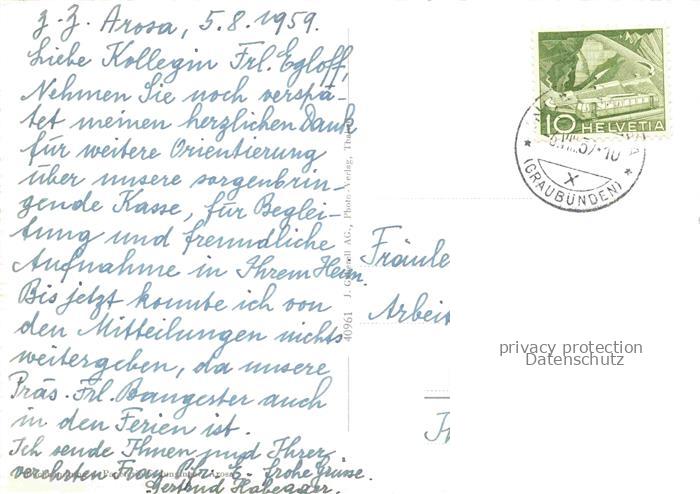 z. Z. Arosa, 5.8.1959.
Liebe Kollegin Frl. Egloff,
Nehmen Sie noch verspä-
tet meinen herzlichen Dank
für weitere Orientierung
über unsere sorgenbrin-
gende Kasse, für Beglei-
tung und freundliche
Aufnahme in Ihrem Heim.
Bis jetzt konnte ich von
den Mitteilungen nichts
weitergeben, da unsere
Präs. Frl. Bangester auch
in den Ferien ist.
Ich sende Ihnen und Ihrer
verehrten Frau frohe Grüsse.
Gertrud Habegger.
40961 J. AG., Photo-Verlag,
10 HELVETIA
(GRAUBÜNDEN)
X
Fräule
Arbeit
privacy protection
Datenschutz